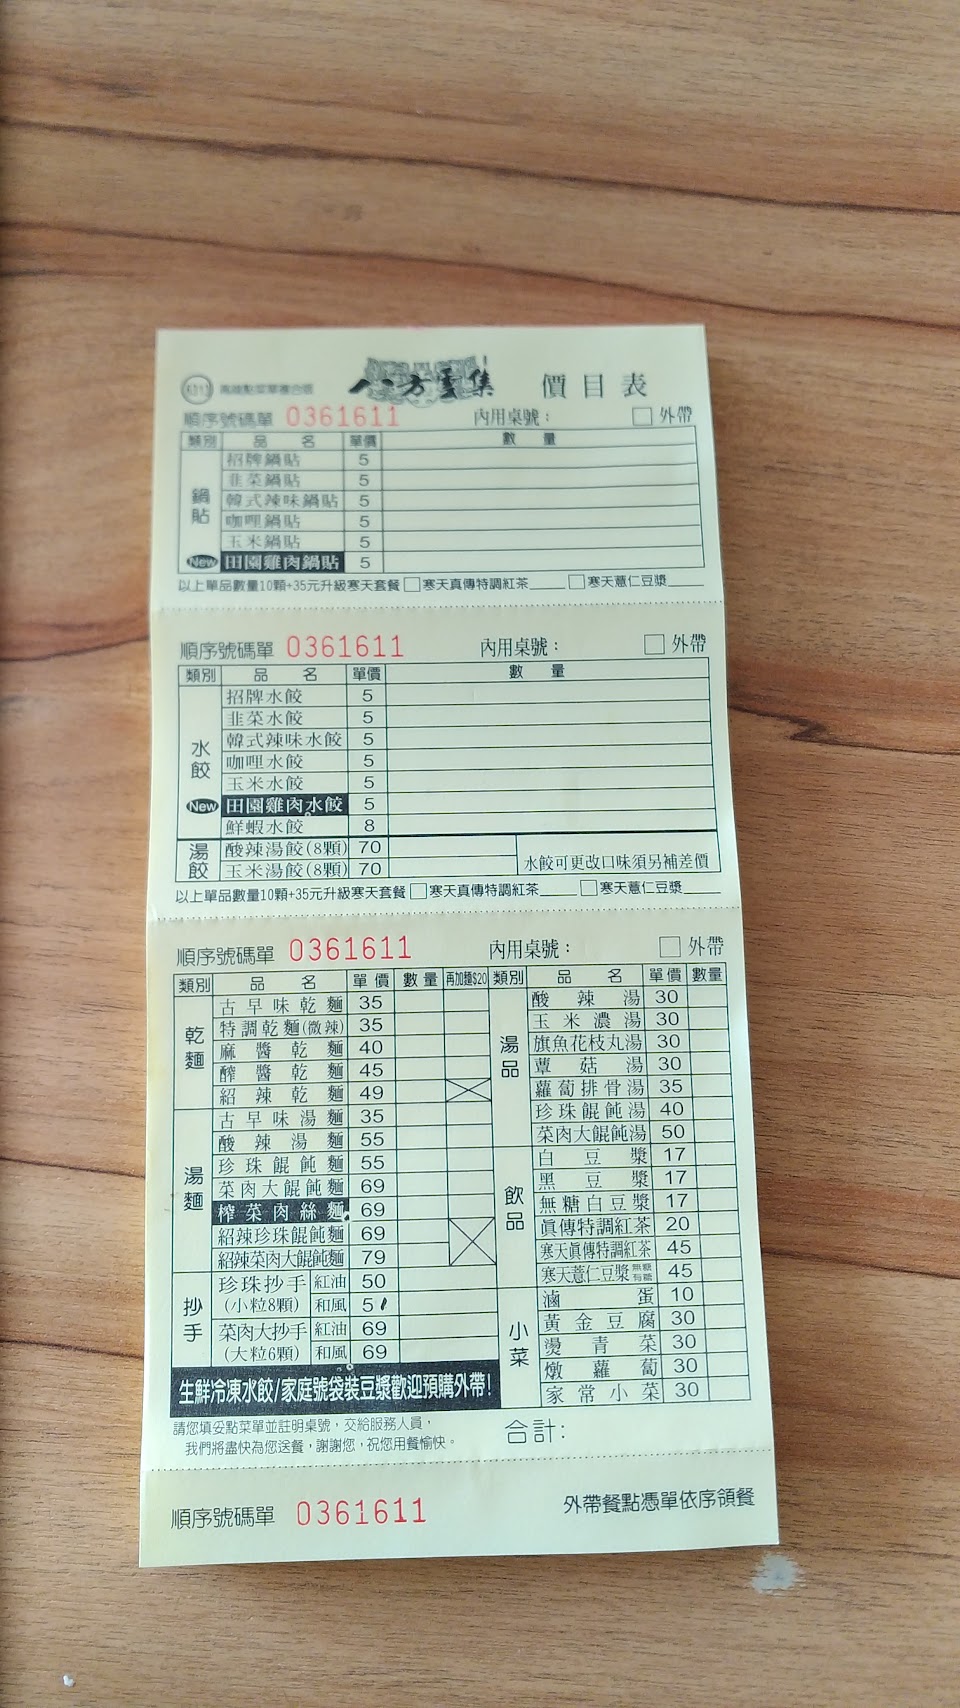 八方雲集 價目表
順序號碼單 0361611 內用桌號： □ 外帶
類別 品名 單價 數量
鍋貼
招牌鍋貼 5
韭菜鍋貼 5
韓式辣味鍋貼 5
咖哩鍋貼 5
玉米鍋貼 5
New 田園雞肉鍋貼 5
以上單品數量10顆+35元升級寒天套餐 □寒天真傳特調紅茶____ □寒天薏仁豆漿____
順序號碼單 0361611 內用桌號： □ 外帶
類別 品名 單價 數量
水餃
招牌水餃 5
韭菜水餃 5
韓式辣味水餃 5
咖哩水餃 5
玉米水餃 5
New 田園雞肉水餃 5
鮮蝦水餃 8
湯餃
酸辣湯餃(8顆) 70
玉米湯餃(8顆) 70
水餃可更改口味須另補差價
以上單品數量10顆+35元升級寒天套餐 □寒天真傳特調紅茶____ □寒天薏仁豆漿____
順序號碼單 0361611 內用桌號： □ 外帶
類別 品名 單價 數量 再加麵$20
乾麵
古早味乾麵 35
特調乾麵(微辣) 35
麻醬乾麵 40
醡醬乾麵 45
紹辣乾麵 49
湯麵
古早味湯麵 35
酸辣湯麵 55
珍珠餛飩麵 55
菜肉大餛飩麵 69
榨菜肉絲麵 69
紹辣珍珠餛飩麵 69
紹辣菜肉大餛飩麵 79
抄手
珍珠抄手(小粒8顆) 紅油 50
和風 5
菜肉大抄手(大粒6顆) 紅油 69
和風 69
類別 品名 單價 數量
湯品
酸辣湯 30
玉米濃湯 30
旗魚花枝丸湯 30
蕈菇湯 30
蘿蔔排骨湯 35
珍珠餛飩湯 40
菜肉大餛飩湯 50
飲品
白豆漿 17
黑豆漿 17
無糖白豆漿 17
眞傳特調紅茶 20
寒天眞傳特調紅茶 45
寒天薏仁豆漿 無糖 有糖 45
小菜
滷蛋 10
黃金豆腐 30
燙青菜 30
燉蘿蔔 30
家常小菜 30
生鮮冷凍水餃/家庭號袋裝豆漿歡迎預購外帶!
請您填妥點菜單並註明桌號，交給服務人員，
我們將盡快為您送餐，謝謝您，祝您用餐愉快。
合計：
順序號碼單 0361611 外帶餐點憑單依序領餐